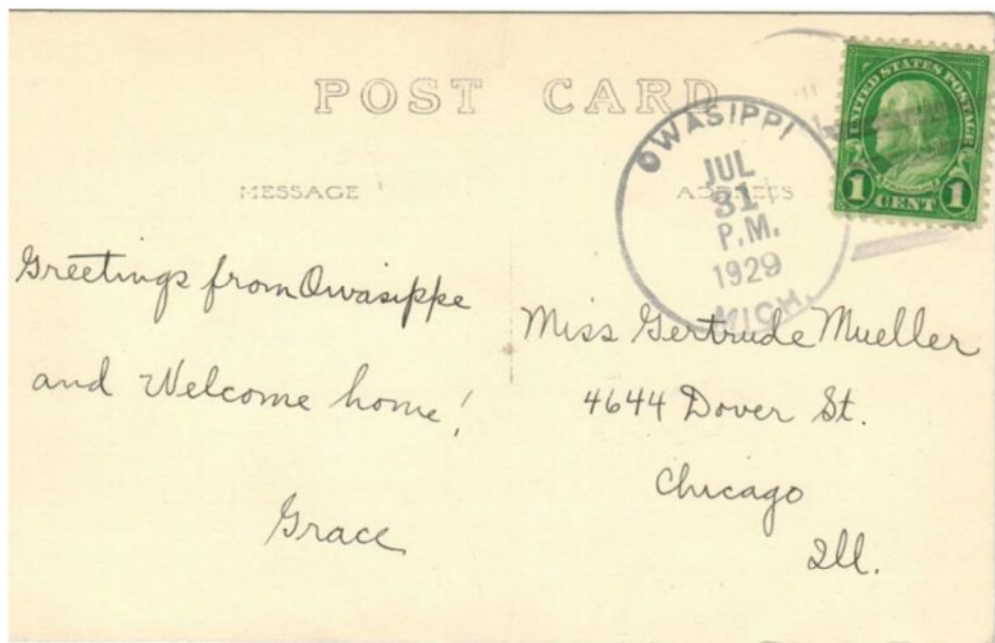 POST CARD
MESSAGE
ADDRESS
OWASIPPI
JUL
31
P.M.
1929
MICH.
UNITED STATES POSTAGE
FRANKLIN
1 CENT 1
Greetings from Owasippe
and Welcome home!
Grace
Miss Gertrude Mueller
4644 Dover St.
Chicago
Ill.